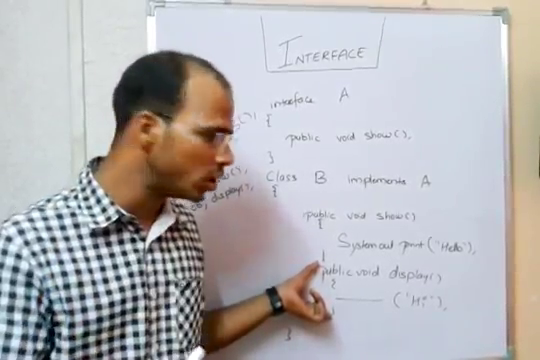 INTERFACE
interface A
{
public void show();
}
Class B implements A
{
public void show()
{
System.out.print("Hello");
}
public void display()
{
("Hi");
}
}
display();